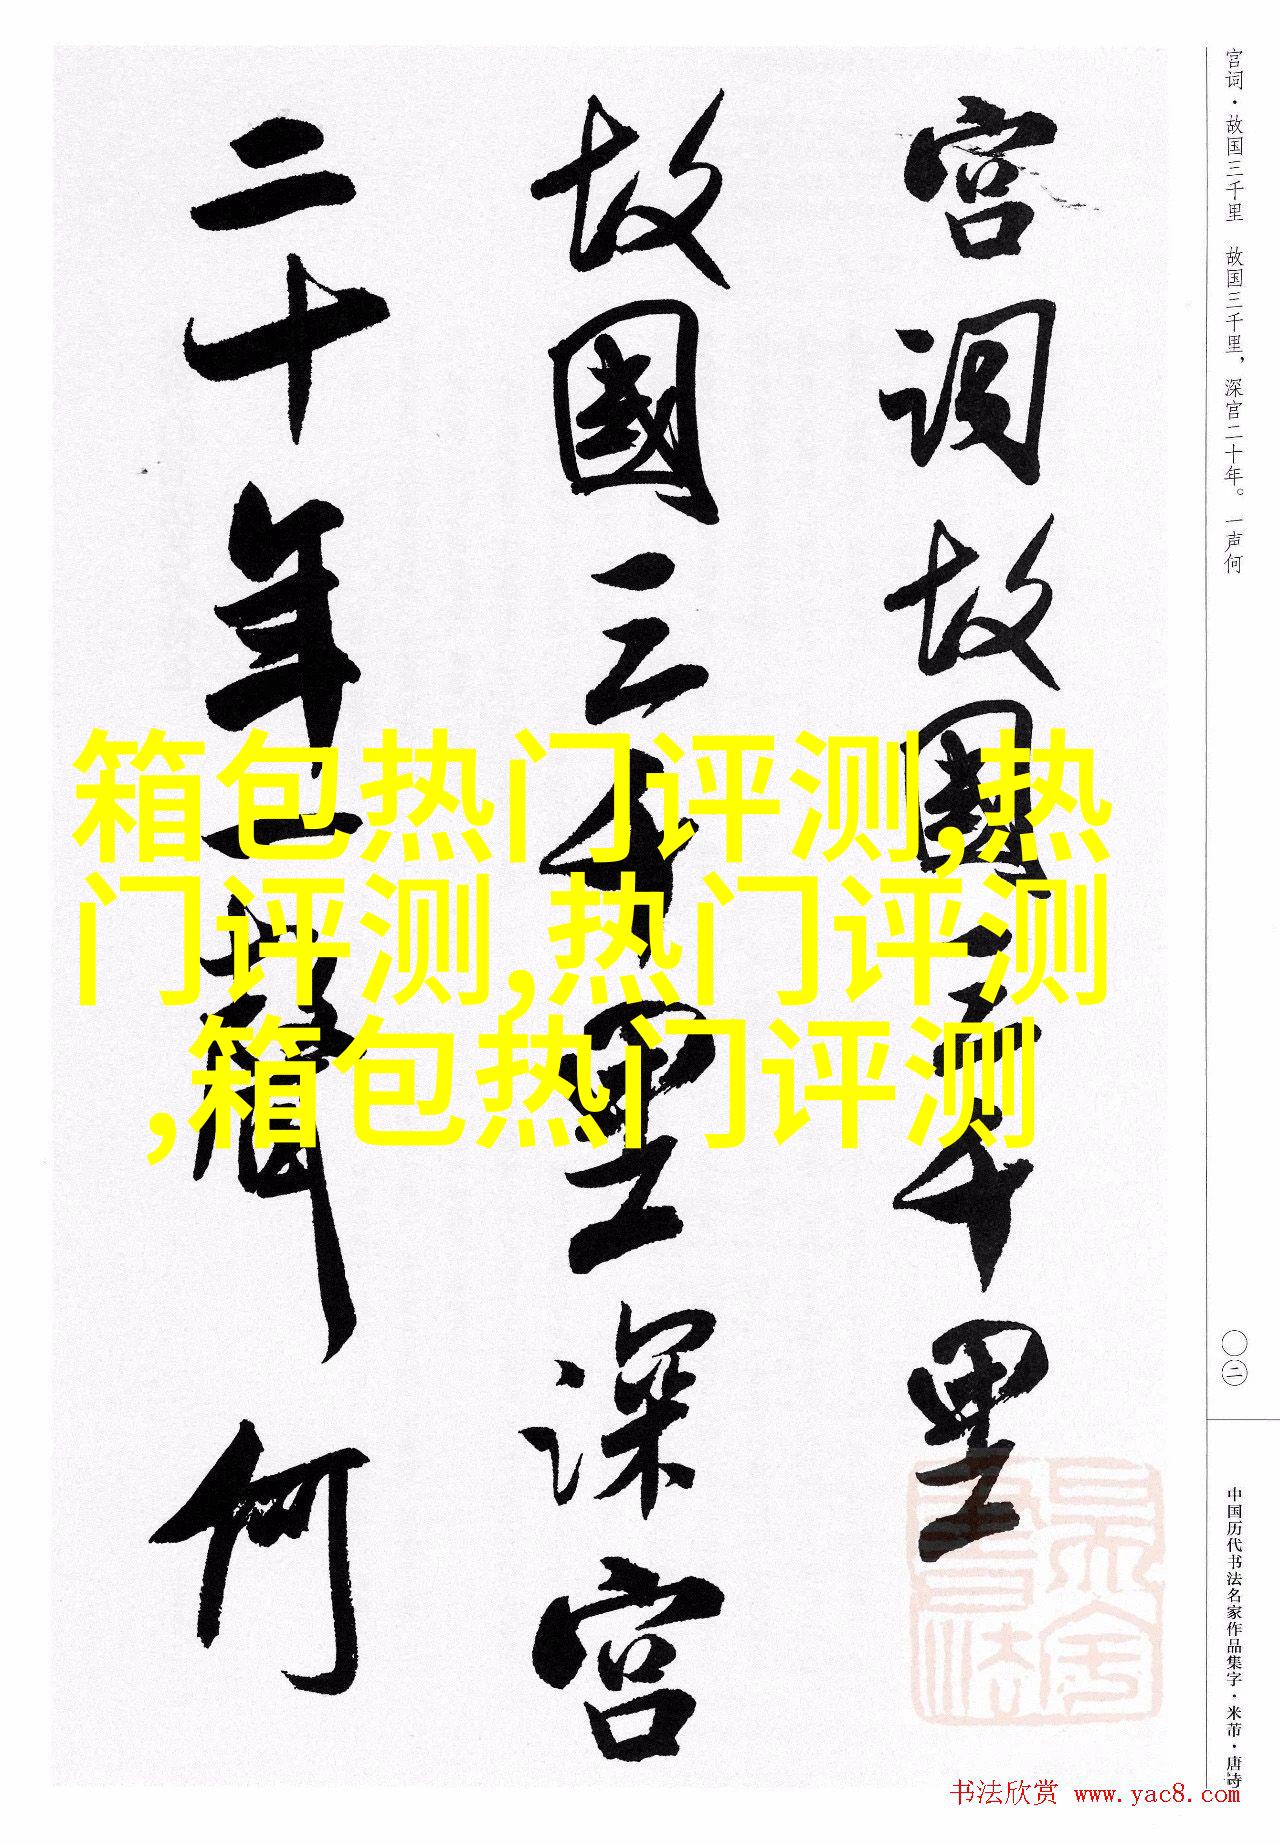 宫词·故国三千里　故国三千里，深宫二十年。一声何
宫词故國三千里
故國三千里深宫
二十年一聲何
箱包热门评测,热
门评测,热门评测
,箱包热门评测
〇二
中国历代书法名家作品集字·米芾·唐诗
书法欣赏 www.yac8.com